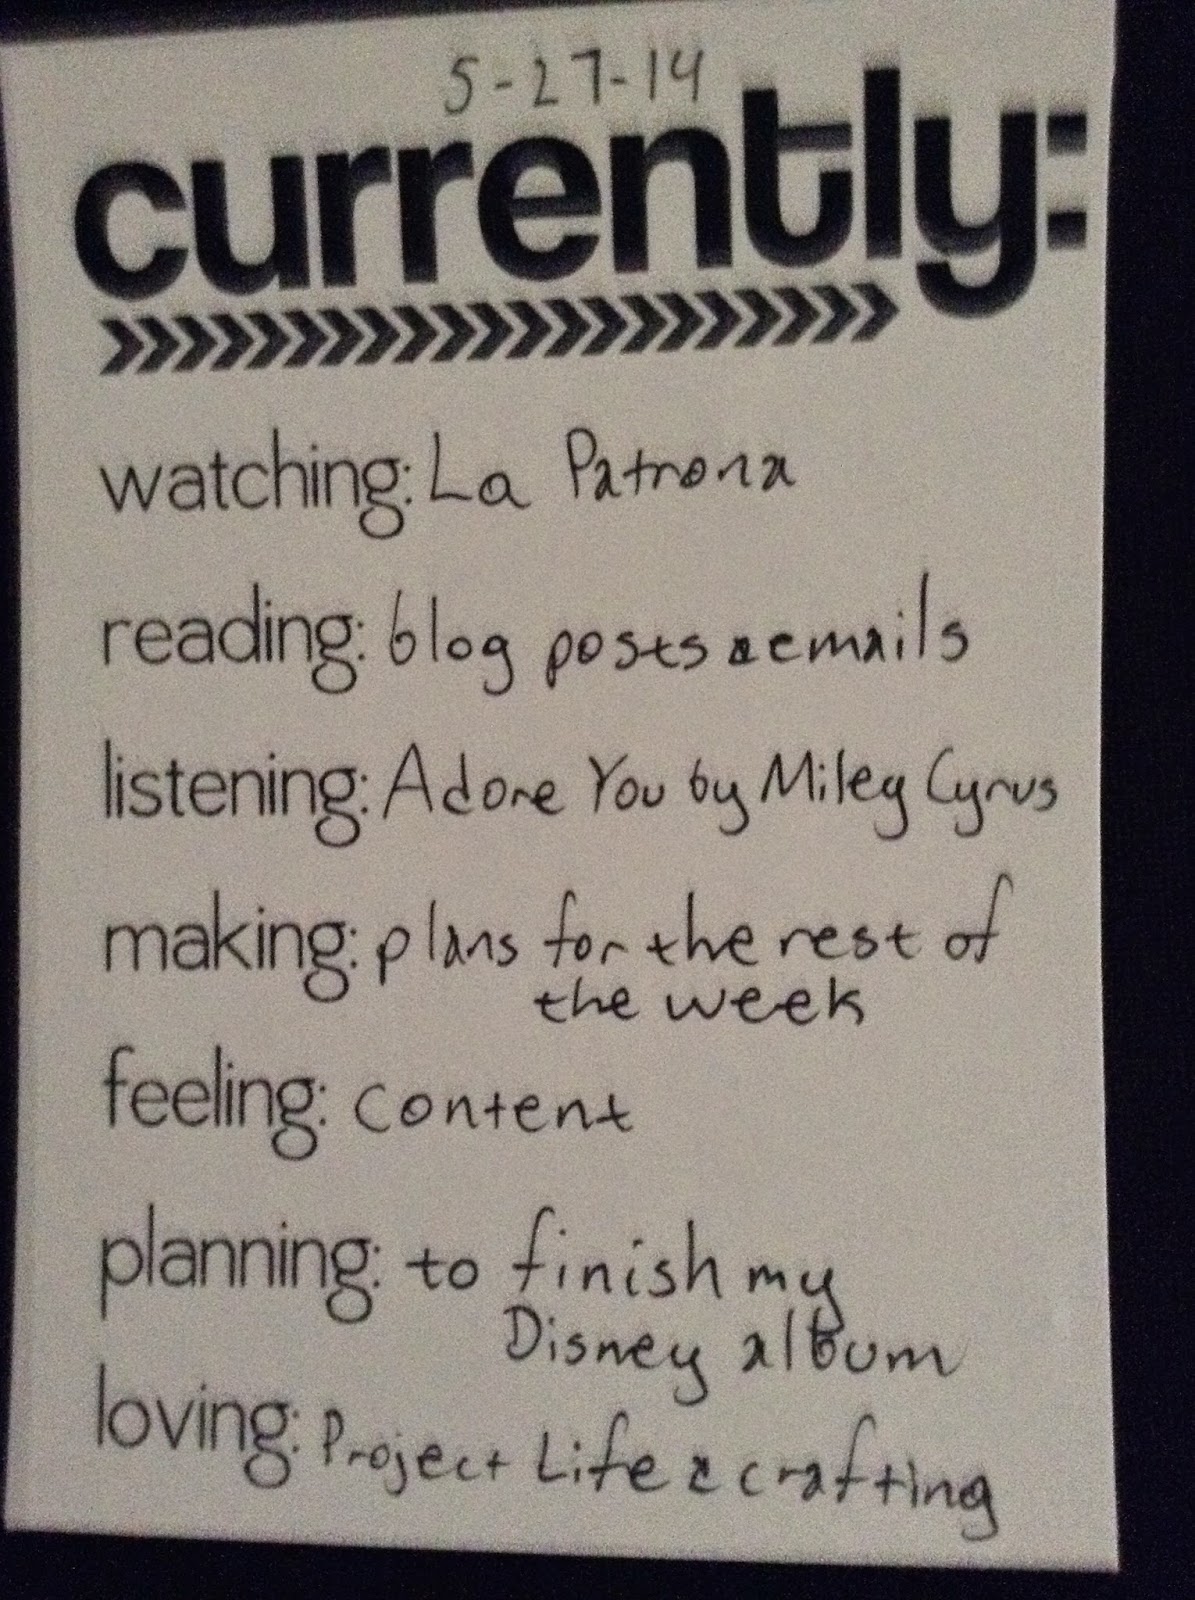 5-27-14
currently:
watching: La Patrona
reading: blog posts & emails
listening: Adore You by Miley Cyrus
making: plans for the rest of
the week
feeling: content
planning: to finish my
Disney album
loving: Project Life & crafting